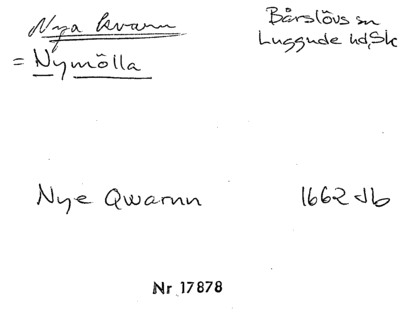 Nya kvarn
Bårslövs sn
= Nymölla
Luggude hd, Sk
Nye Qwarnn
1662 Jb
Nr 17878